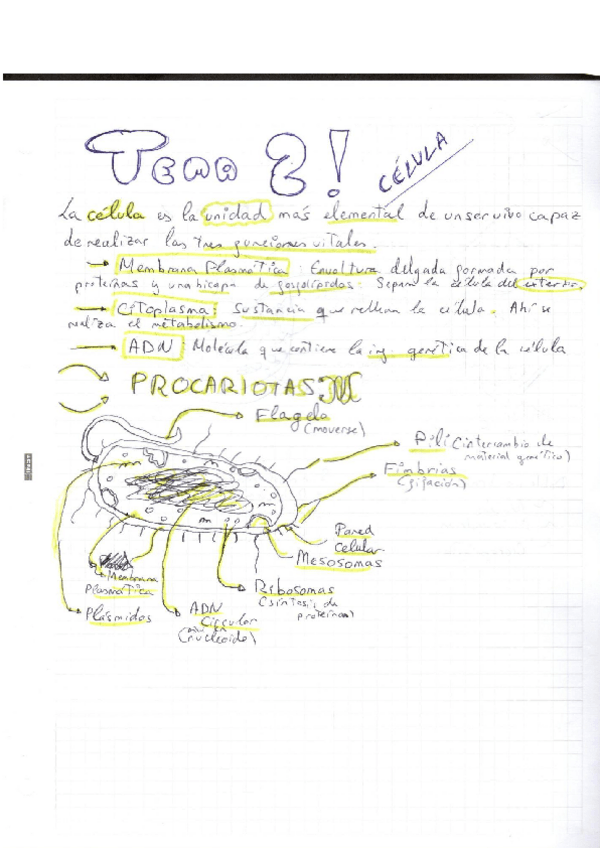 Tema 2!
CÉLULA
La célula es la unidad más elemental de un ser vivo capaz
de realizar las tres funciones vitales.
→ Membrana Plasmática: Envoltura delgada formada por
proteínas y una bicapa de fosfolípidos. Separa la célula del exterior.
→ Citoplasma: Sustancia que rellena la célula. Ahí se
realiza el metabolismo.
→ ADN: Molécula que contiene la inf. genética de la célula
PROCARIOTAS
Flagelo
(moverse)
Pili (intercambio de
material genético)
Fimbrias
(fijación)
Pared
Celular
Mesosomas
Membrana
Plasmática
Ribosomas
(síntesis de
proteínas)
Plásmidos
ADN
Circular
(nucleoide)